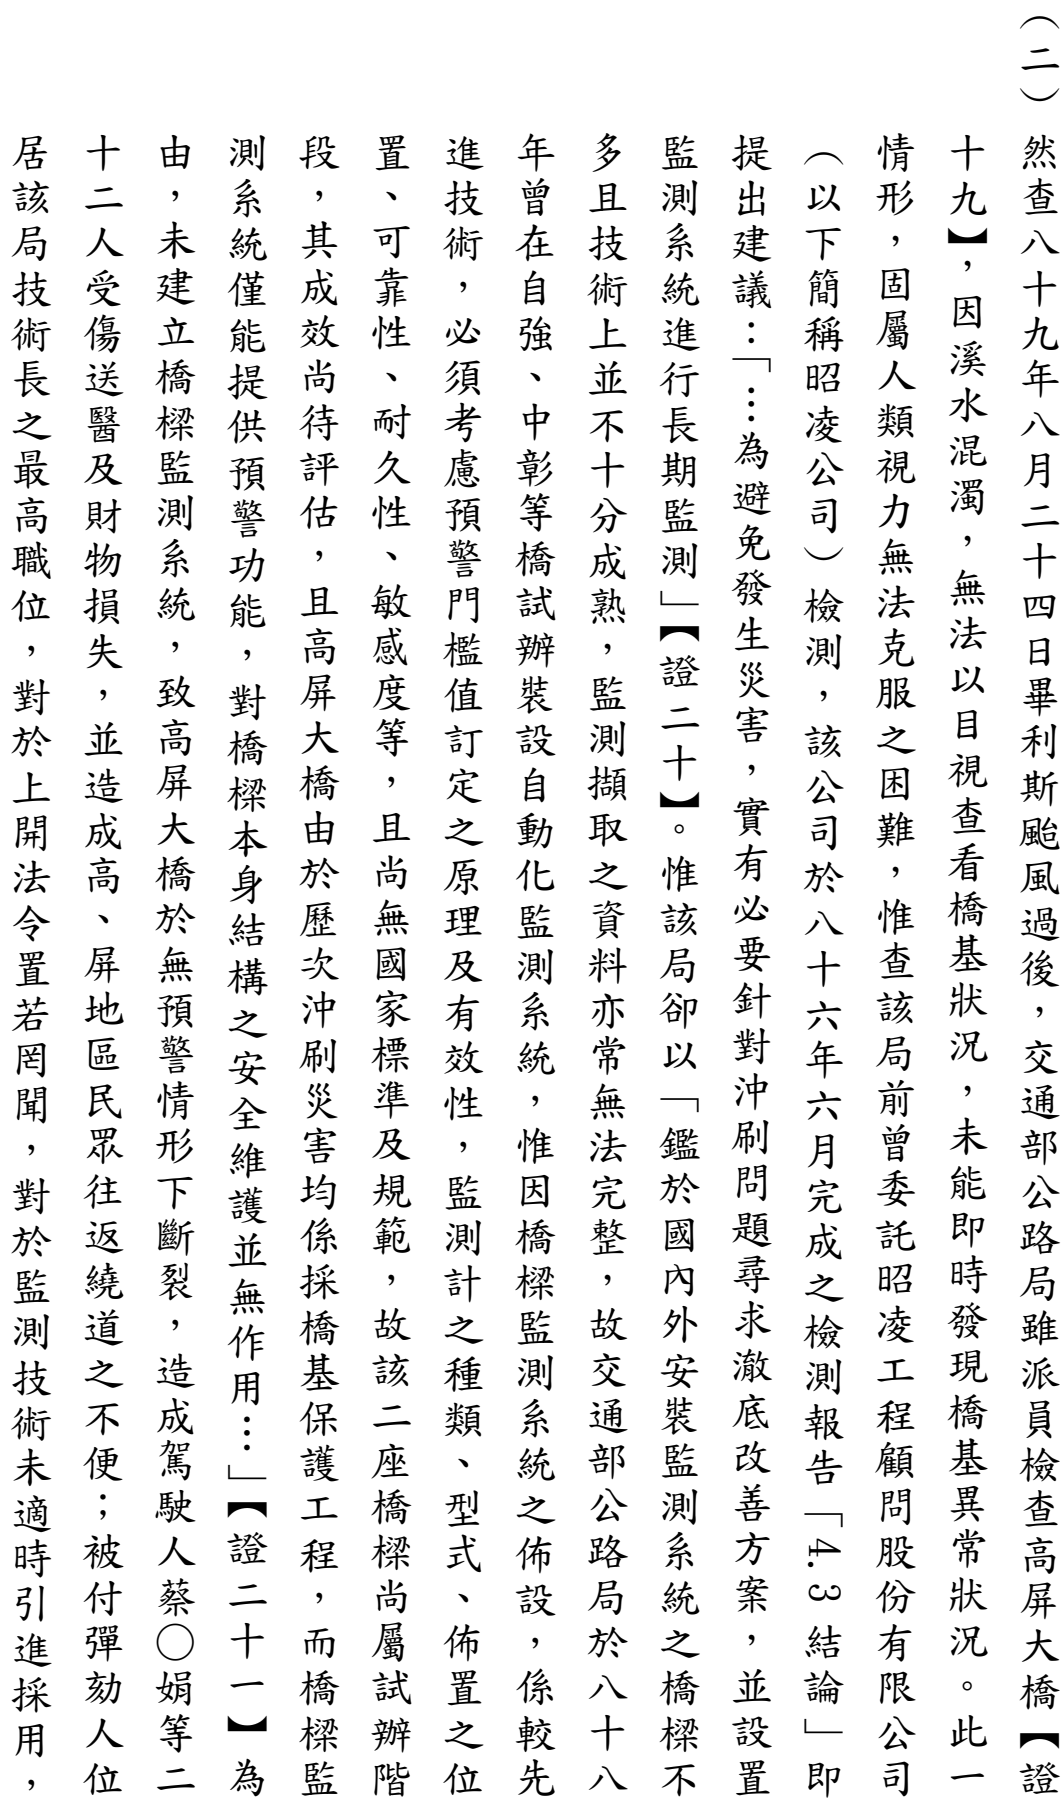 （二）然查八十九年八月二十四日畢利斯颱風過後，交通部公路局雖派員檢查高屏大橋【證
十九】，因溪水混濁，無法以目視查看橋基狀況，未能即時發現橋基異常狀況。此一
情形，固屬人類視力無法克服之困難，惟查該局前曾委託昭凌工程顧問股份有限公司
（以下簡稱昭凌公司）檢測，該公司於八十六年六月完成之檢測報告「4.3結論」即
提出建議：「…為避免發生災害，實有必要針對沖刷問題尋求澈底改善方案，並設置
監測系統進行長期監測」【證二十】。惟該局卻以「鑑於國內外安裝監測系統之橋樑不
多且技術上並不十分成熟，監測擷取之資料亦常無法完整，故交通部公路局於八十八
年曾在自強、中彰等橋試辦裝設自動化監測系統，惟因橋樑監測系統之佈設，係較先
進技術，必須考慮預警門檻值訂定之原理及有效性，監測計之種類、型式、佈置之位
置、可靠性、耐久性、敏感度等，且尚無國家標準及規範，故該二座橋樑尚屬試辦階
段，其成效尚待評估，且高屏大橋由於歷次沖刷災害均係採橋基保護工程，而橋樑監
測系統僅能提供預警功能，對橋樑本身結構之安全維護並無作用…」【證二十一】為
由，未建立橋樑監測系統，致高屏大橋於無預警情形下斷裂，造成駕駛人蔡○娟等二
十二人受傷送醫及財物損失，並造成高、屏地區民眾往返繞道之不便；被付彈劾人位
居該局技術長之最高職位，對於上開法令置若罔聞，對於監測技術未適時引進採用，